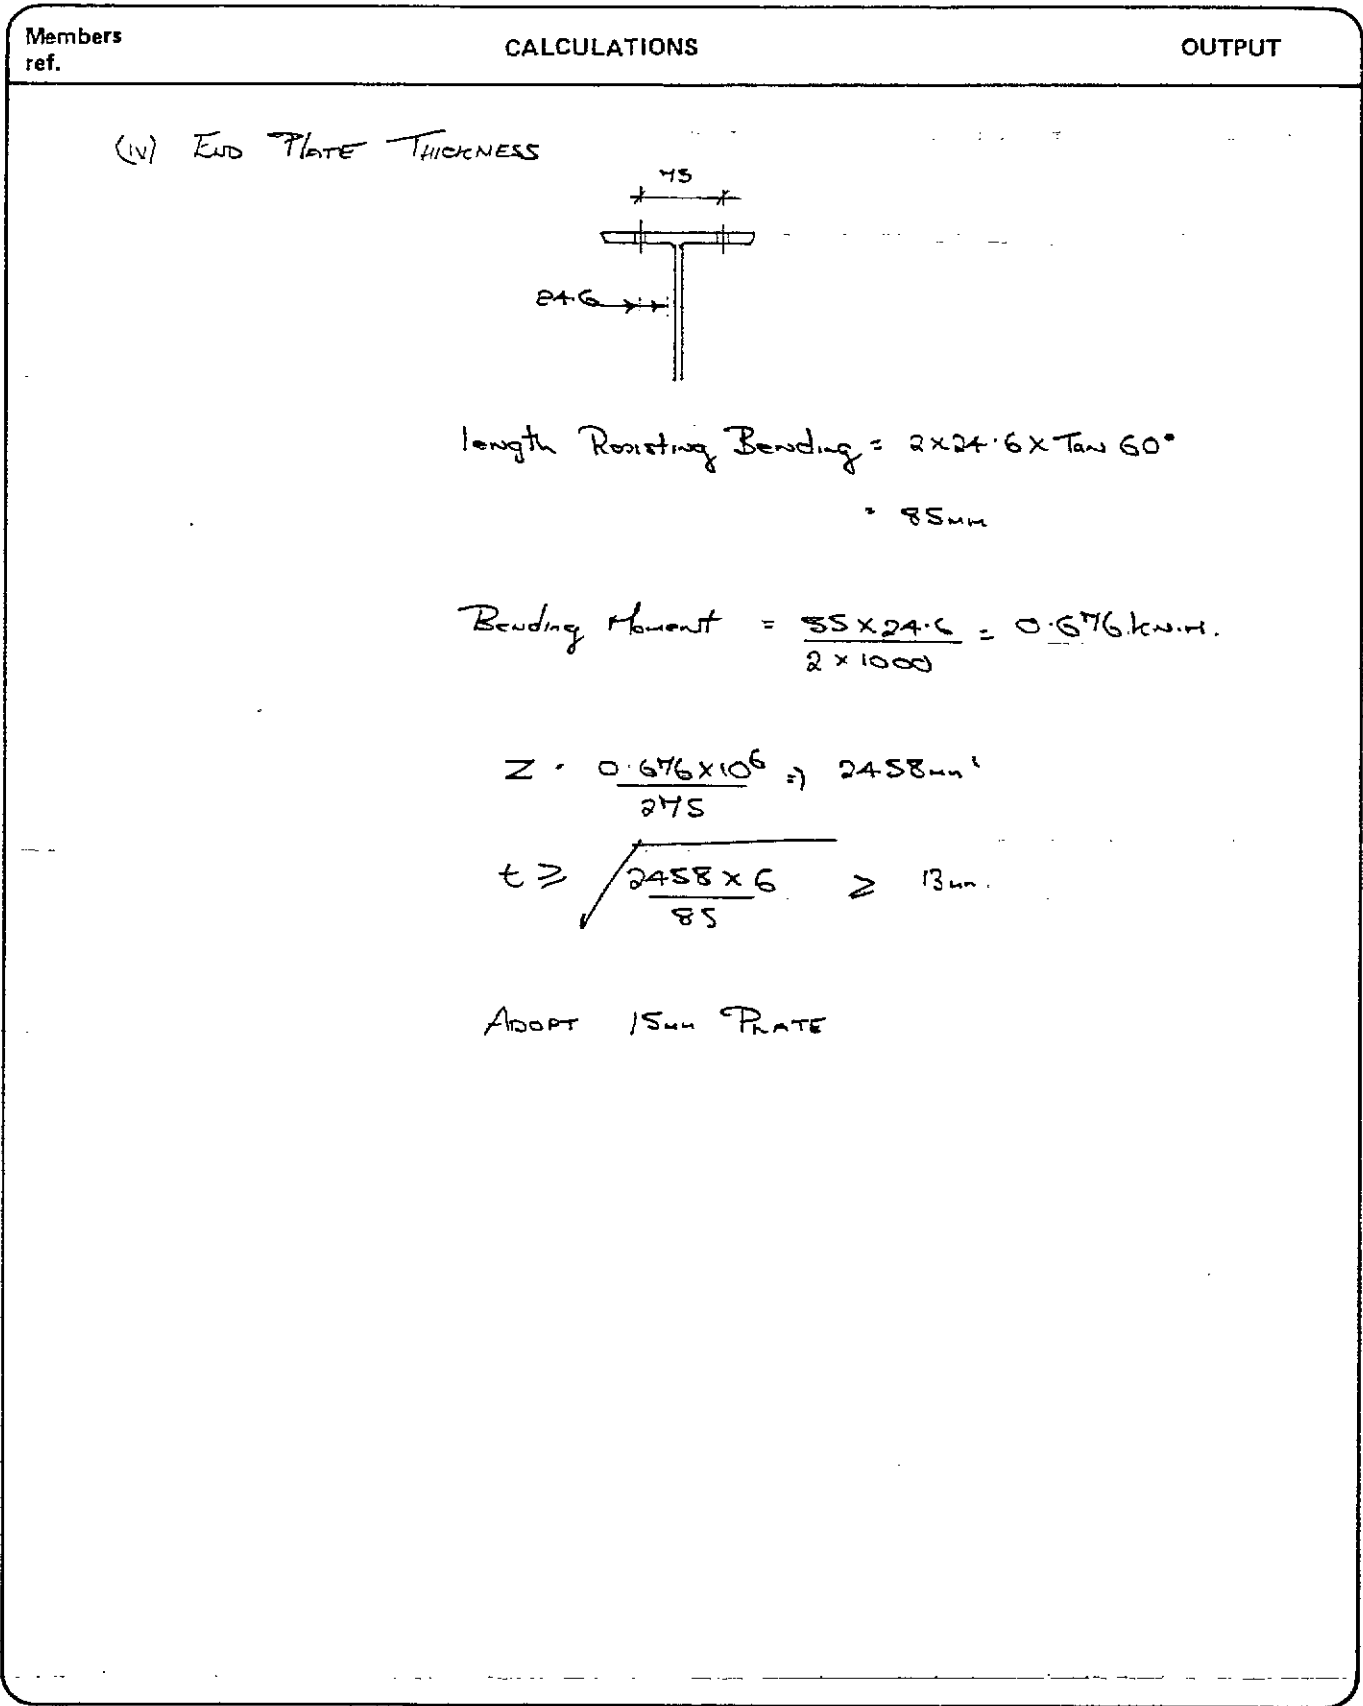 Members ref.
CALCULATIONS
OUTPUT
(iv) END PLATE THICKNESS
75
24.6
length Resisting Bending = 2 x 24.6 x Tan 60°
= 85mm
Bending Moment = 55 x 24.6 / 2 x 1000 = 0.676 kN.M.
Z = 0.676 x 10⁶ / 275 => 2458mm³
t ≥ √ 2458 x 6 / 85 ≥ 13mm.
ADOPT 15mm PLATE